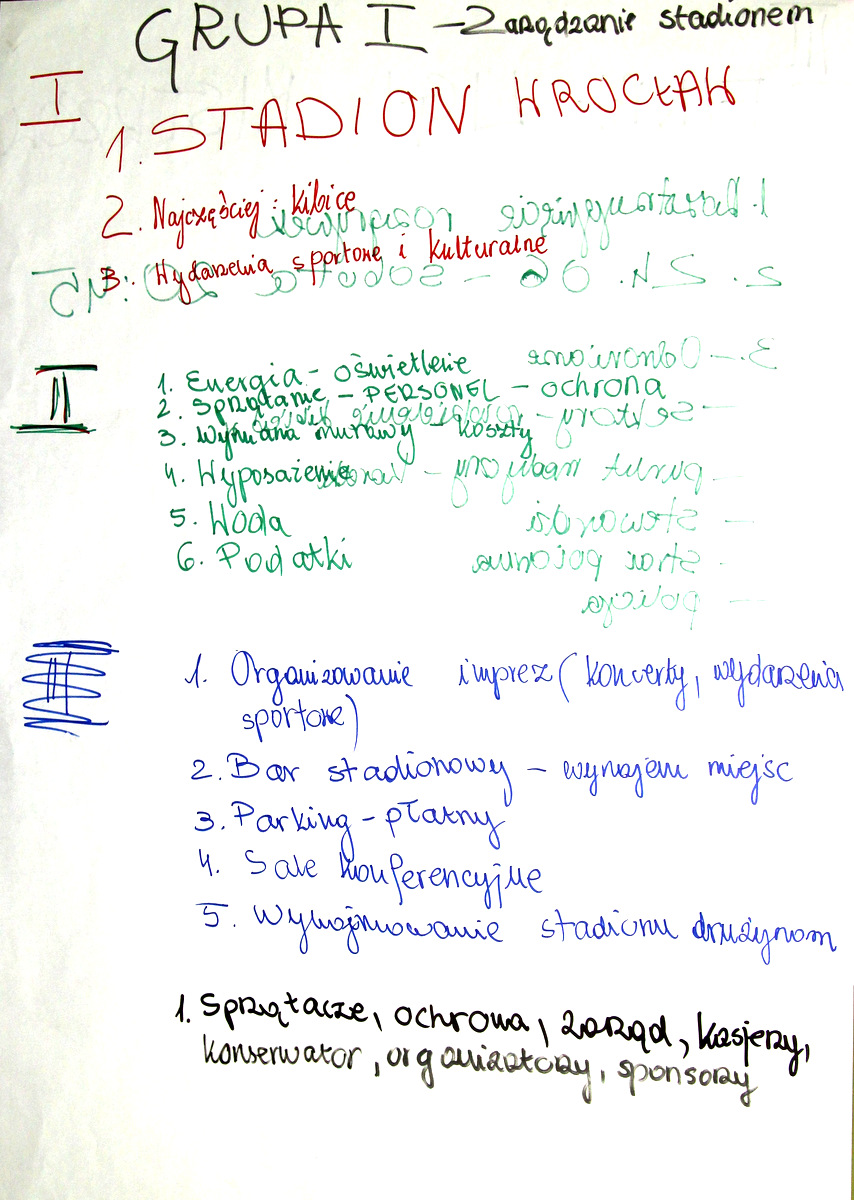 GRUPA I - Zarządzanie stadionem
I
1. STADION WROCŁAW
2. Najczęściej: kibice
3. Wydarzenia sportowe i kulturalne
II
1. Energia - oświetlenie
2. Sprzątanie - PERSONEL - ochrona
3. Wymiana murawy - koszty
4. Wyposażenie
5. Woda
6. Podatki
III
1. Organizowanie imprez (koncerty, wydarzenia
sportowe)
2. Bar stadionowy - wynajem miejsc
3. Parking - płatny
4. Sale konferencyjne
5. Wynajmowanie stadionu drużynom
1. Sprzątacze, ochrona, zarząd, kasjerzy,
konserwator, organizatorzy, sponsorzy